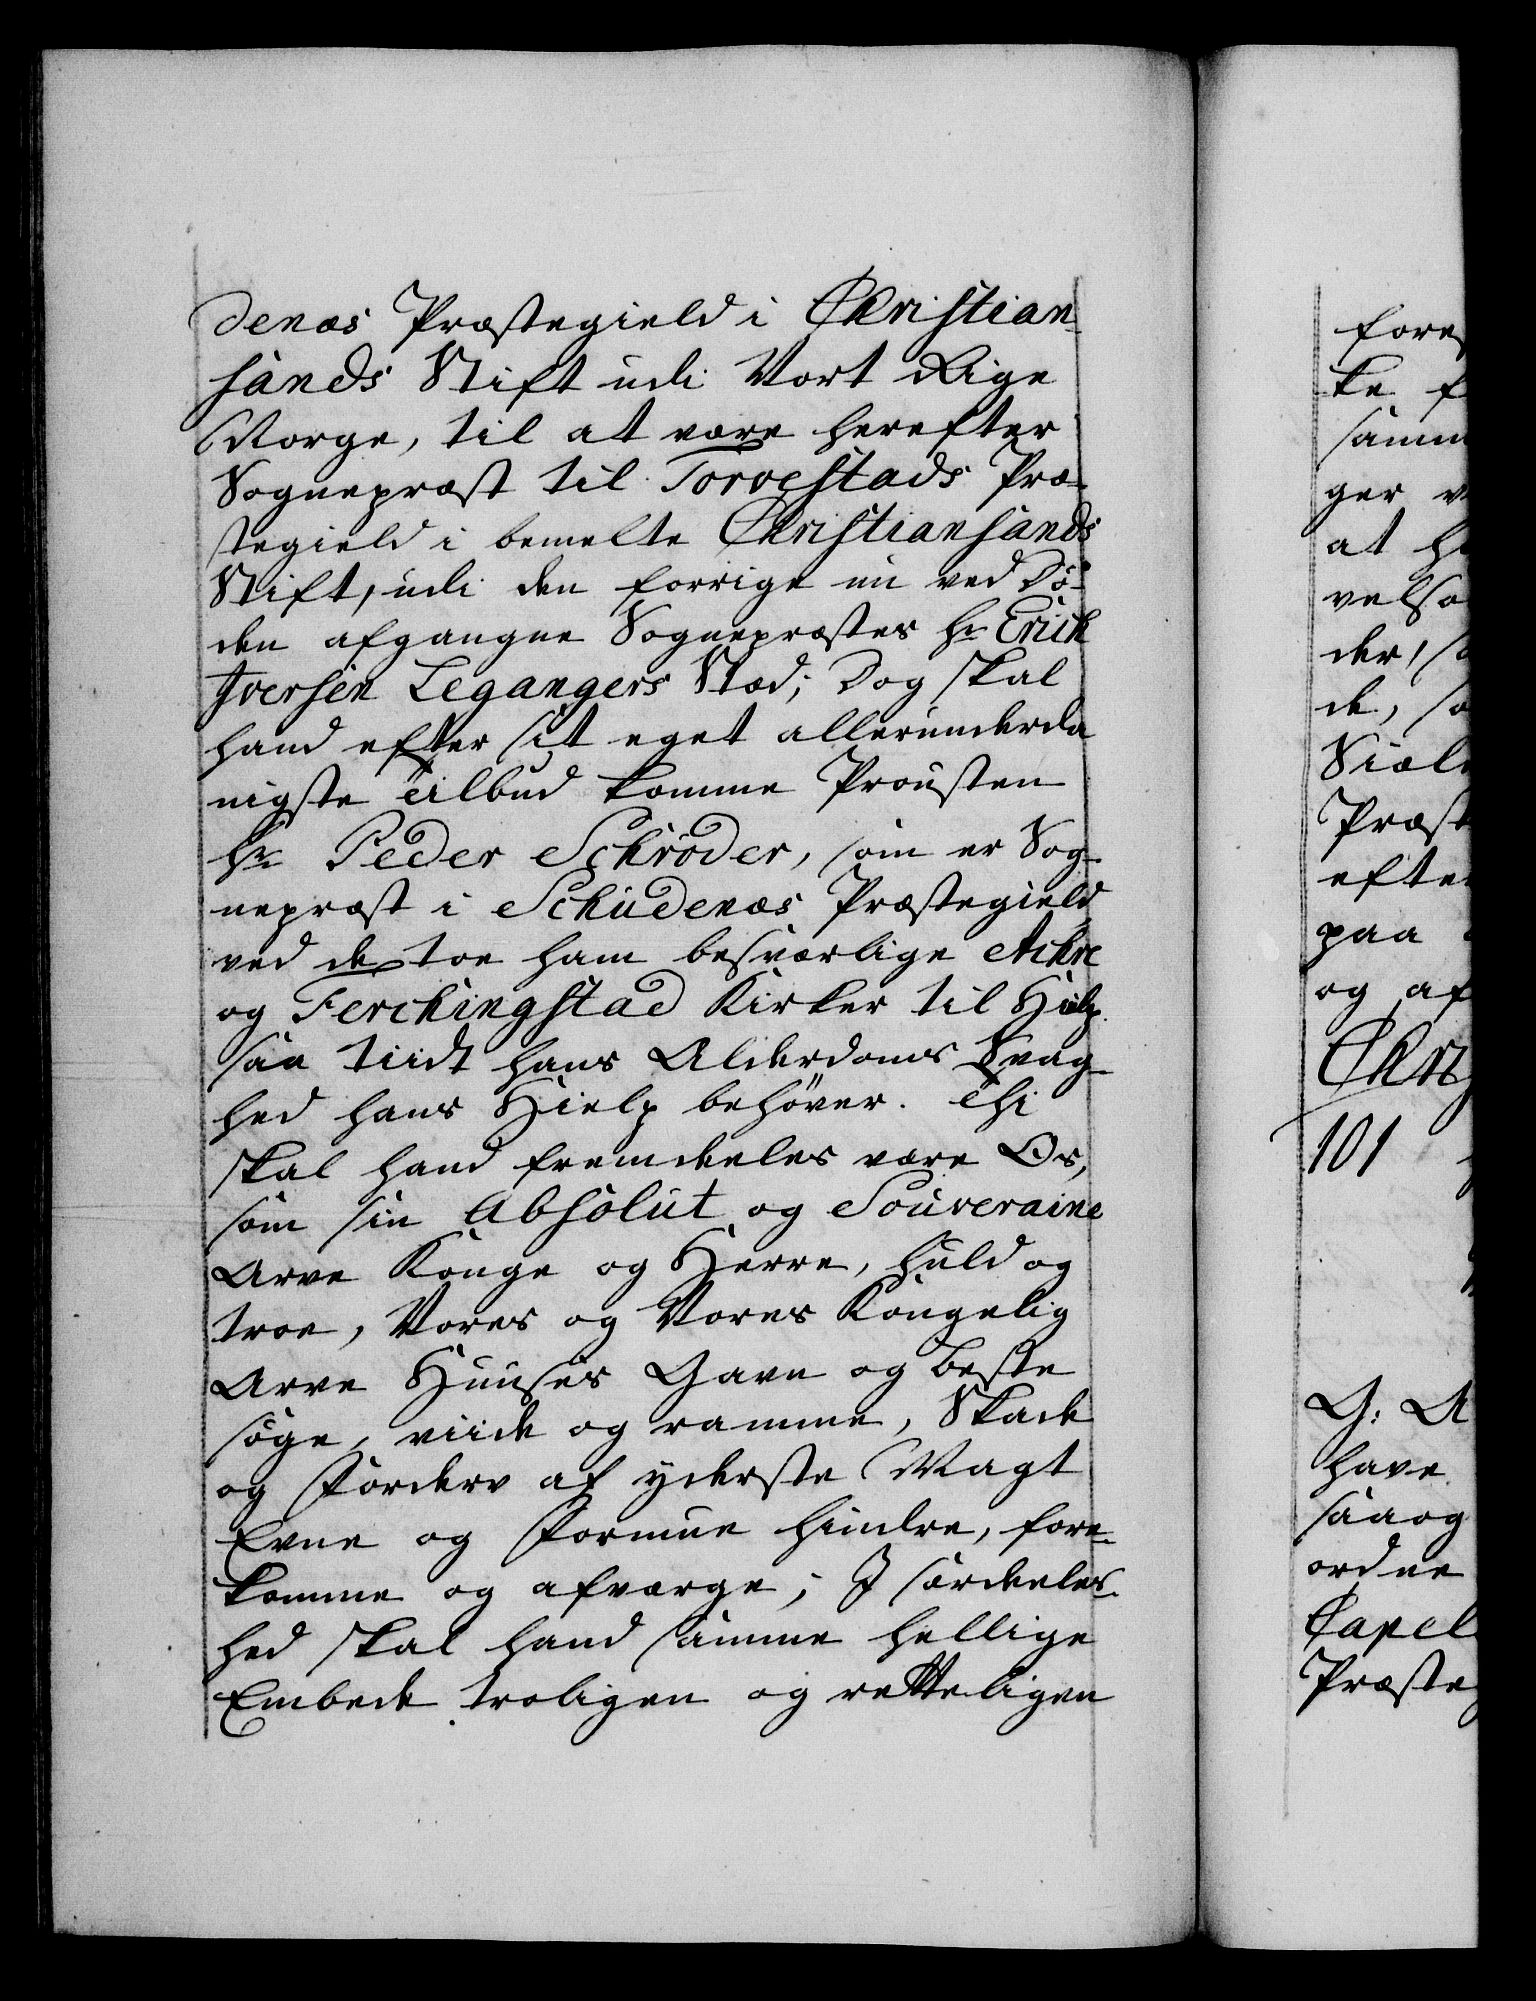 denæs Præstegield i Christian-
sands Stift udi Vort Rige
Norge, til at være herefter
Sognepræst til Torvestads Præ-
stegield i bemelte Christiansands
Stift, udi den forrige nu ved Dö-
den afgangne Sognepræstes Hr Erich
Iversen Legangers Stæd; Dog skal
hand efter sit eget allerunderda
nigste Tilbud komme Prousten
Hr Peder Schröder, som er Sog-
nepræst i Schudenæs Præstegield
ved de toe ham besværlige Ackre
og Ferchingstad Kirker til Hielp
saa tiidt hans Alderdoms Svag-
hed hans Hielp behöver. Thi
skal hand fremdeeles være Os,
som sin Absolut og Souveraine
Arve Konge og Herre, huld og
troe, Vores og Vores Kongelig
Arve Huuses Gavn og beste
söge, viide og ramme, Skade
og Forderv af yderste Magt
Evne og Formue hindre, fore-
komme og afværge; I særdeeles-
hed skal hand samme hellige
Embede troligen og retteligen
fore
ke f
samm
ger v
at h
velso
der, s
de, so
Siæle
Præst
efter
paa
og af
Chri
101
G: A
have
saaog
ordne
Capel
Præste